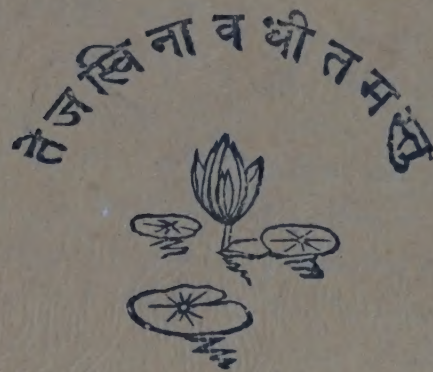 तेजस्वि नावधीतमस्तु